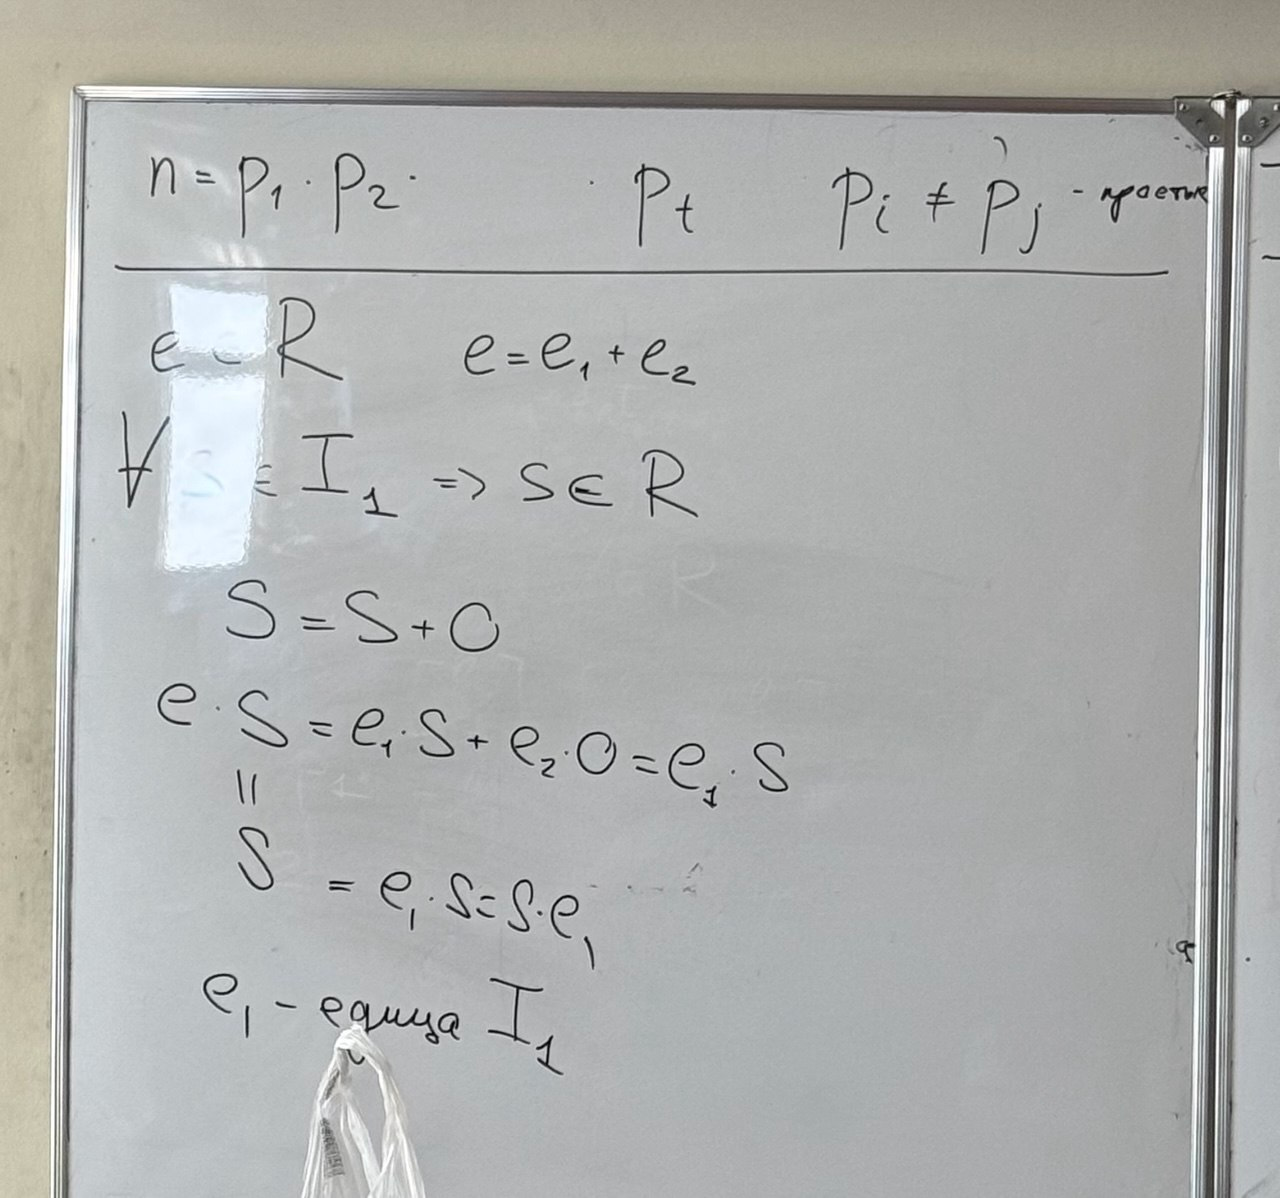 n = p₁ · p₂ · · pₜ pᵢ ≠ pⱼ - простые
e ∈ R e = e₁ + e₂
∀ S ∈ I₁ => S ∈ R
S = S + 0
e · S = e₁ · S + e₂ · 0 = e₁ · S
||
S = e₁ · S = S · e₁
e₁ - едица I₁